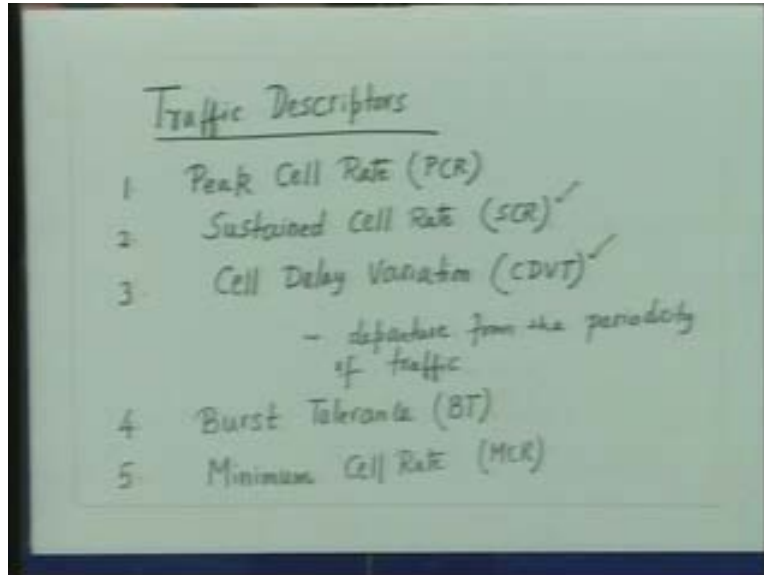 Traffic Descriptors
1. Peak Cell Rate (PCR)
2. Sustained Cell Rate (SCR) ✓
3. Cell Delay Variation (CDVT) ✓
- departure from the periodicity
of traffic
4 Burst Tolerance (BT)
5. Minimum Cell Rate (MCR)